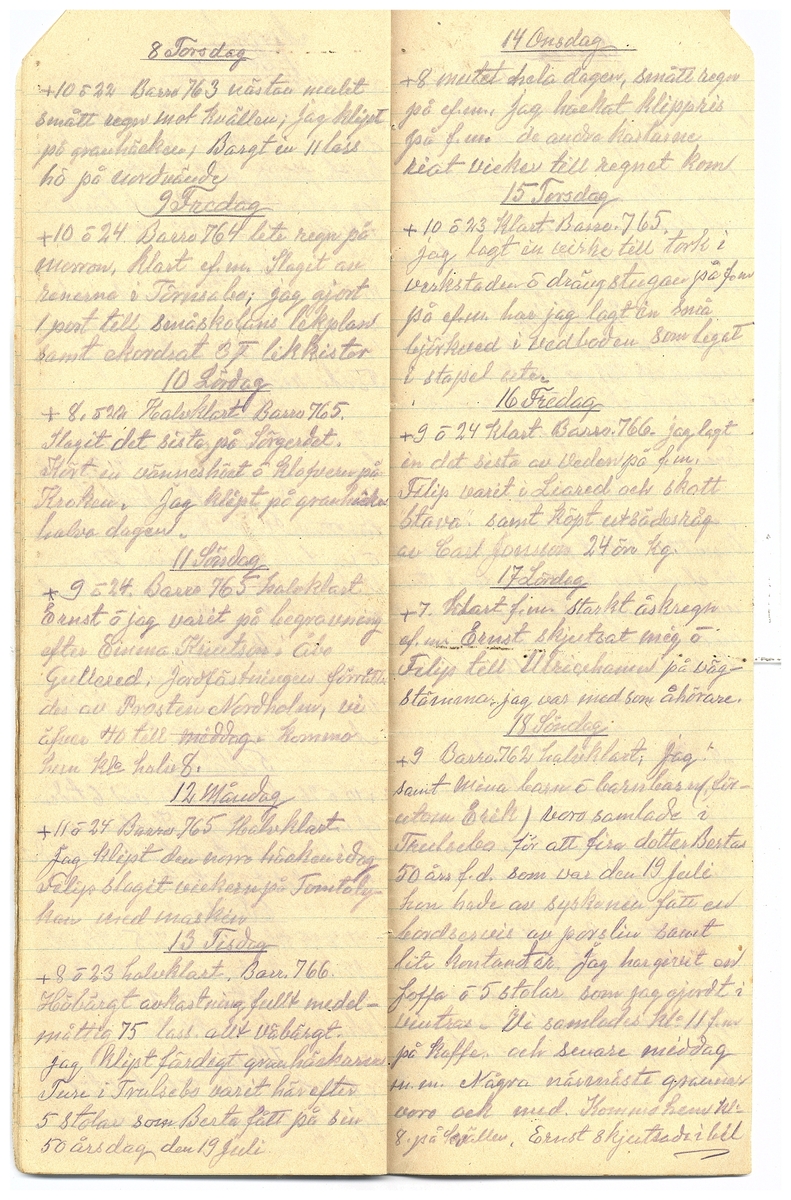 8 Torsdag
+10 ō 22 Barro 763 nästan mulet
smått regn mot kvällen; jag klipt
på granhäcken; Bärgt in 11 lass
hö på nordvände
9 Fredag
+10 ō 24 Barro 764 lite regn på
morron, klart ef.m. Slagit av
renerna i Törnsabo; jag gjort
1 port till småskolans lekplan
samt ekordsat 3 likkistor
10 Lördag
+ 8. ō 22 Halvklart Barro 765.
Slagit det sista på Sörgerdet.
Kört in vänneshöst ō klöfvern på
Kroken. Jag klipt på granhäcken
halva dagen.
11 Söndag
+ 9 ō 24. Barro 765 halvklart
Ernst ō jag varit på begravning
efter Emma Knutson i Åbo
Gullered; Jordfästningen förrätta-
des av Prosten Nordholm, vi
äfver 40 till middag. Kommo
hem kl: halv 8.
12 Måndag
+11 ō 24 Barro 765 Halvklart
Jag klipt den norra häcken idag
Filip slagit vickern på Tomtaly-
kan med maskin
13 Tisdag
+8 ō 23 halvklart, Barr. 766.
Höbärgt avkastning fullt medel-
måttig 75 lass. allt välbärgt.
jag klipt färdigt granhäckarna
Ture i Trulsebo varit här efter
5 stolar som Berta fått på sin
50 årsdag den 19 Juli
14 Onsdag
+8 mulet hela dagen, smått regn
på ef.m. jag hackat klippris
på f.m. de andra karlarne
reat vicker till regnet kom
15 Torsdag
+ 10 ō 23 Klart Barro. 765.
jag lagt in virke till tork i
verkstaden ō drängstugan på f.m
på ef.m. har jag lagt in små
björkved i vedboden som legat
i stapel ute.
16 Fredag
+9 ō 24 Klart Barro. 766. jag lagt
in det sista av veden på f.m.
Filip varit i Liared och skott
"Stava" samt köpt utsädesråg
av Carl Jonsson 24 öre kg.
17 Lördag
+7. Klart f.m. starkt åskregn
ef.m. Ernst skjutsat mig ō
Filip till Ulricehamn på väg-
stämma. jag var med som åhörare.
18 Söndag
+9 Barro. 762 halvklart; Jag
samt mina barn ō barnbarn (för-
utom Erik) voro samlade i
Trulsebo för att fira dotter Bertas
50 års f.d. som var den 19 Juli
hon hade av syskonen fått en
bordservis av porslin samt
lite kontanter. Jag har gevit en
soffa ō 5 stolar som jag gjordt i
vintras. Vi samlades kl: 11 f.m
på kaffe. och senare middag
m.m. Några närmäste grannar
voro ock med. Kommo hem kl:
8. på kvällen, Ernst skjutsade i bil